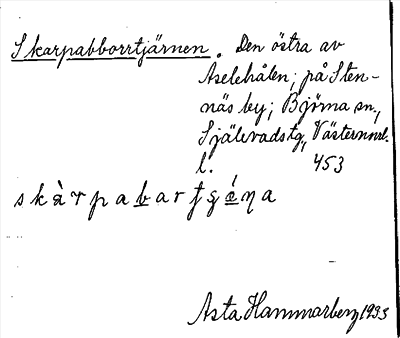 Skarpabborrtjärnen. Den östra av
Aselehålen; på Sten-
näs by; Björna sn.,
Själevadstg, Västernrrl.
l. 453
skàrpabart
Asta Hammarberg 1933